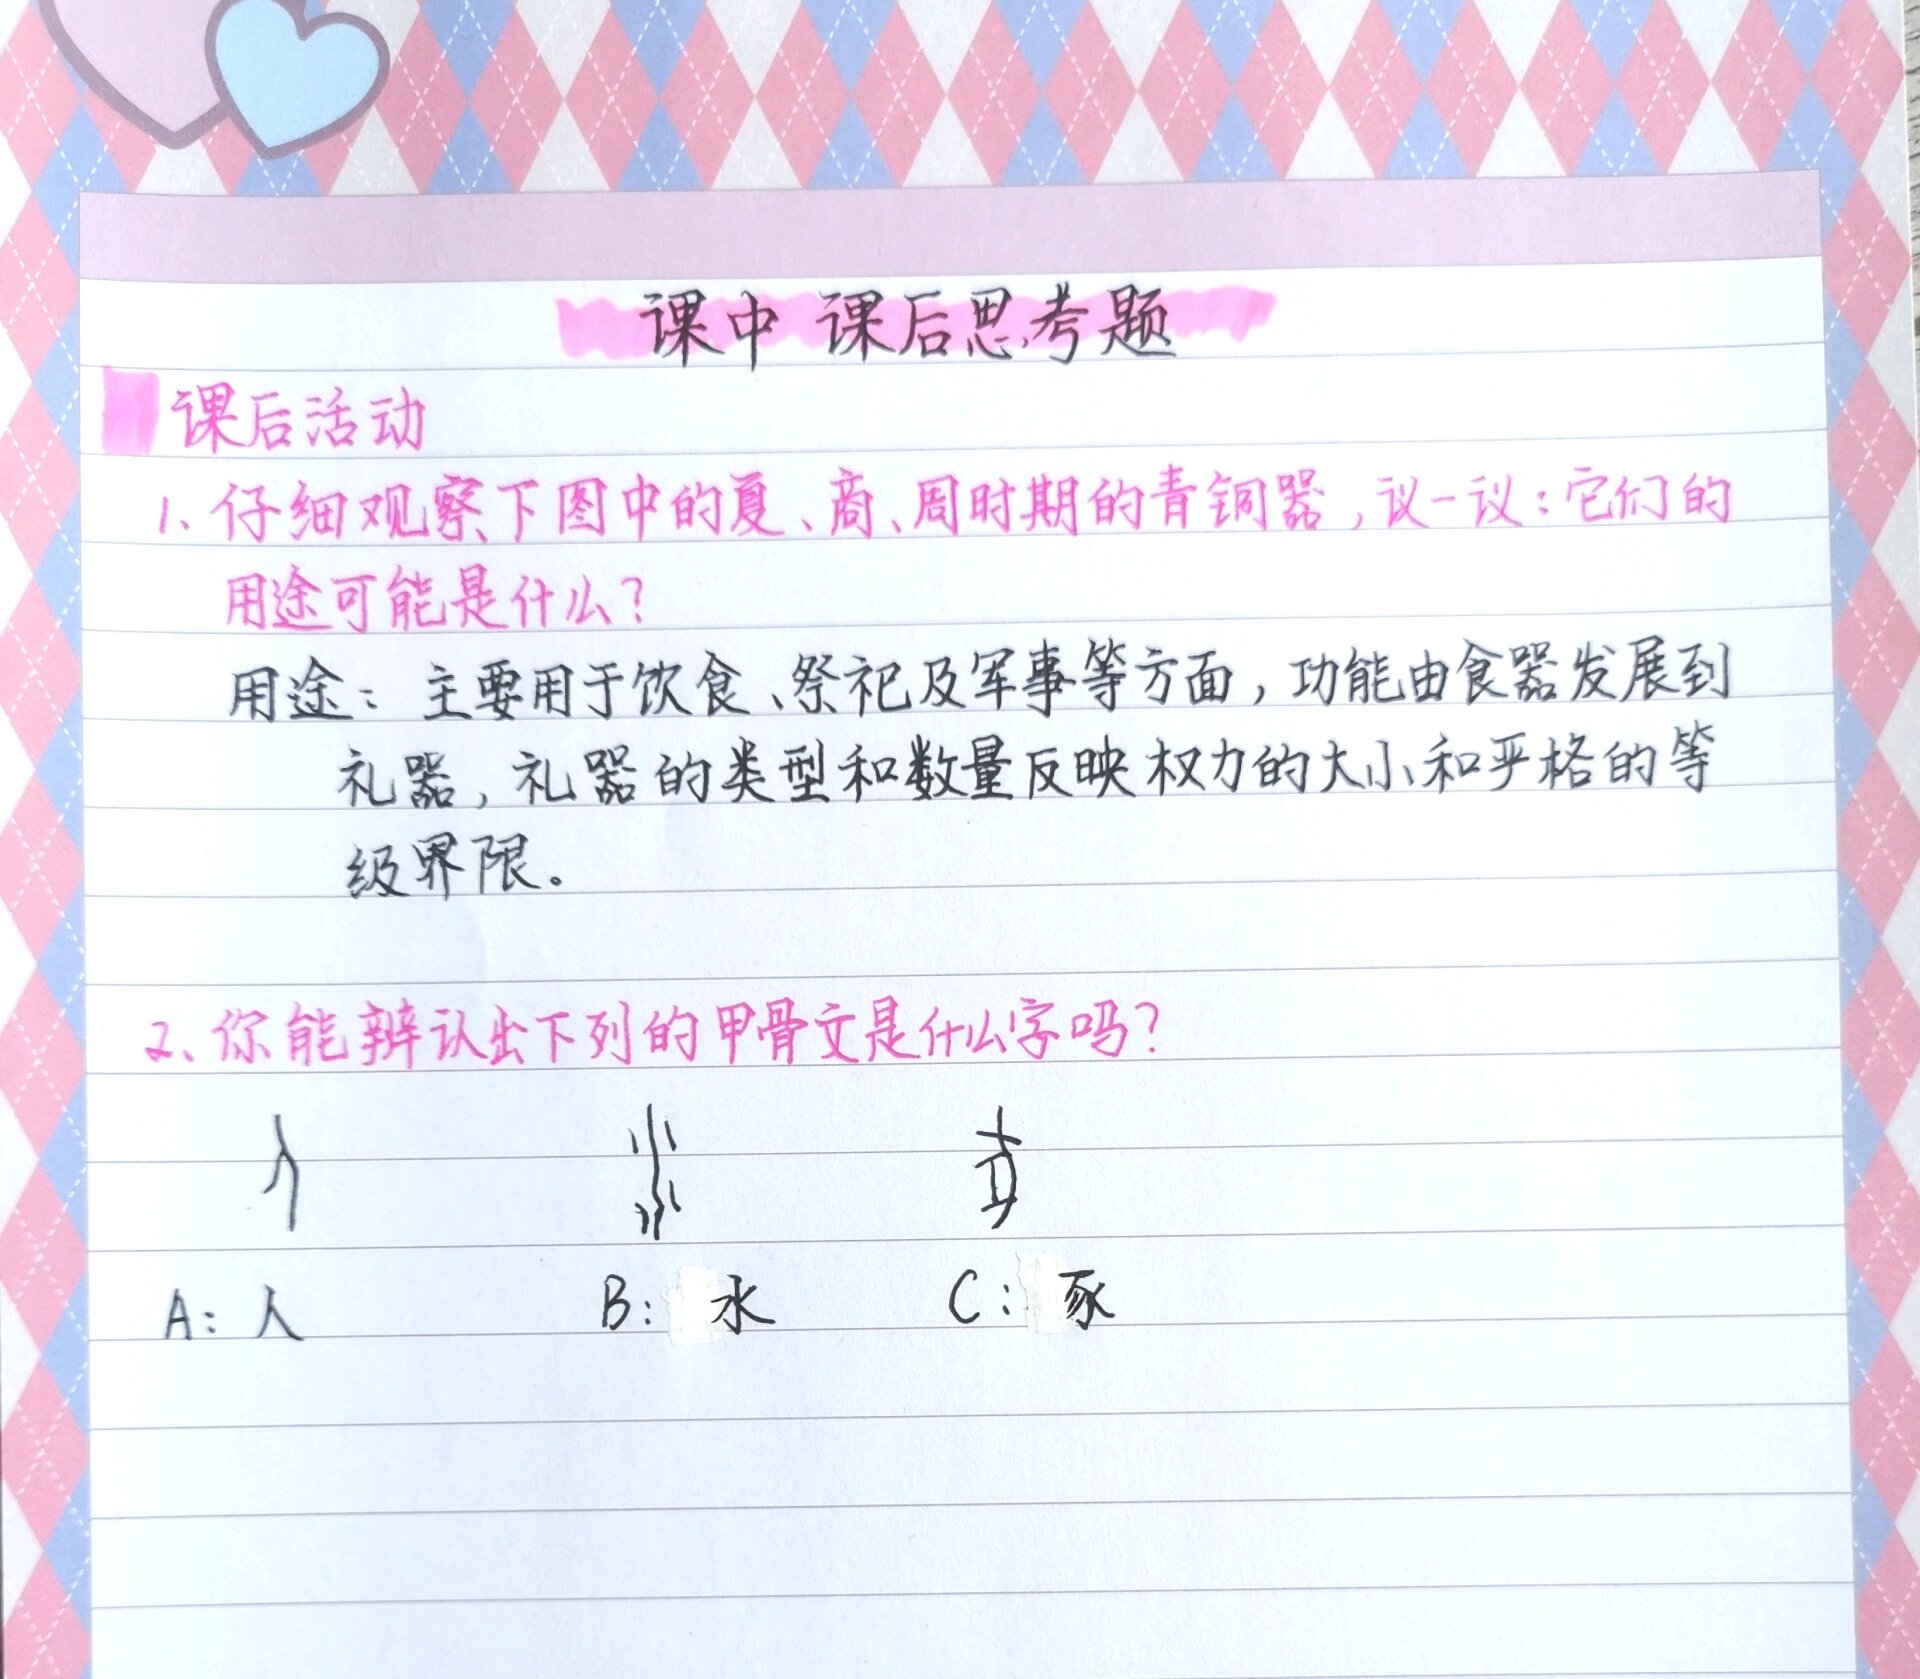 课中 课后思考题
课后活动
1、仔细观察下图中的夏、商、周时期的青铜器,议一议:它们的
用途可能是什么?
用途:主要用于饮食、祭祀及军事等方面,功能由食器发展到
礼器,礼器的类型和数量反映权力的大小和严格的等
级界限。
2、你能辨认出下列的甲骨文是什么字吗?
A:人 B:水 C:豕